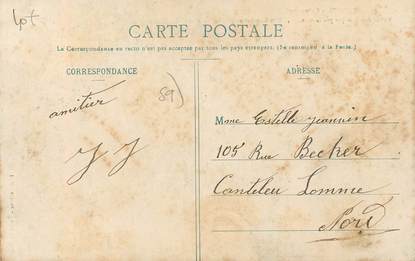 Lot
CARTE POSTALE
La Correspondance au recto n'est pas acceptée par tous les pays étrangers. (Se renseigner à la Poste.)
CORRESPONDANCE
ADRESSE
59)
amitier
J J
Mme Estelle Jeannin
105 Rue Becker
Canteleu Lomme
Nord